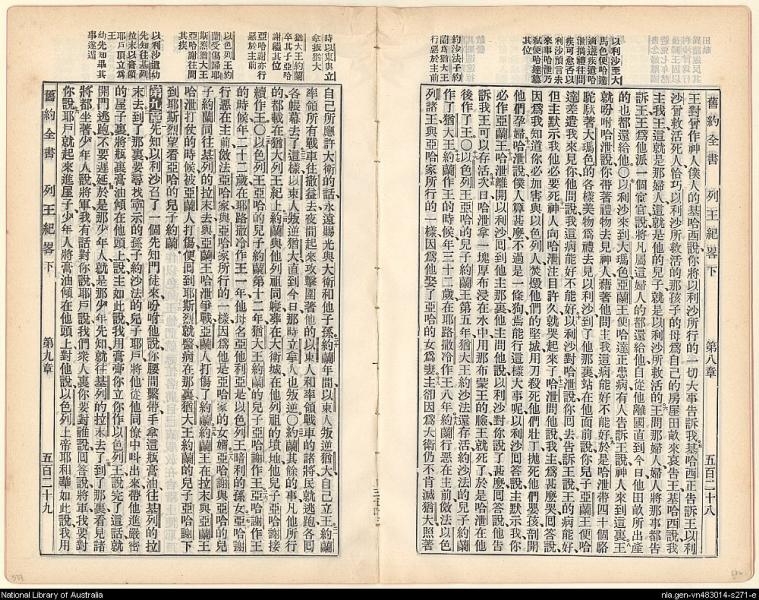 舊約全書 列王紀畧下 第八章 五百二十八
以利沙至大
馬色便哈
達遣哈薛
攜禮往問
疾可愈否以
利沙預言未
來事哈薛乃
弒便哈達篡
其位
約沙法子約
蘭爲猶大王
行惡於主前
王對曾作神人僕人的基哈西說你將以利沙所行的一切大事告訴我基哈西正告訴王以利
沙曾救活死人恰巧以利沙所救活的那孩子的母爲自己的房屋田畝來哀告王基哈西說我
主我王這就是那婦人這就是他的兒子就是以利沙所救活的王問那婦人婦人將那事都告
訴王王爲他派一個宦官說將凡屬這婦人的都還給他自從他離國直到今日他田畝所出產
的也都還給他〇以利沙來到大瑪色亞蘭王便哈達正患病有人告訴王說神人來到這裏王
就吩咐哈薛說你帶著禮物去見神人藉著他問主我這病能好不能好於是哈薛帶四十個駱
駝馱著大瑪色的各樣美物爲禮去見以利沙到了他那裏站在他面前說你兒子亞蘭王便哈
達差遣我來見你他問說我這病能好不能好以利沙對哈薛說你回去告訴王說王的病能好
但主默示我他必要死神人向哈薛注目許久就哭起來了哈薛問他說我主爲甚麼哭回答說
因爲我知道你必加害與以色列人焚燬他們的堅城用刀殺死他們壯丁摔死他們嬰孩剖開
他們孕婦哈薛說僕人算甚麼不過是一條狗焉能行這樣大事呢以利沙回答說主默示我你
必作亞蘭王哈薛離開以利沙回到他主那裏他主問他說以利沙對你說了甚麼回答說他告
訴我王可以存活次日哈薛拿一塊厚布浸在水中用那布蒙王的臉王就死了於是哈薛在他
後作了王〇以色列王亞哈的兒子約蘭王第五年猶大王約沙法還存活約沙法的兒子約蘭
作了猶大王約蘭作王的時候年三十二歲在耶路撒冷作王八年約蘭行惡在主前傚法以色
列諸王與亞哈家所行的一樣因爲他娶了亞哈的女爲妻主卻因爲大衛仍不肯滅猶大照著
舊約全書 列王紀畧下 第九章 五百二十九
時以東與立
拿叛猶大
猶大王約蘭
卒其子亞哈
謝繼其位
亞哈謝亦行
惡於主前
以色列王約
蘭受傷歸耶
斯烈猶大王
亞哈謝往問
其疾
以利沙遣幼
先知往基列
拉末以膏膏
耶戶頂立爲
王
幼先知畢其
事遂遁
自己所應許大衛的話永遠賜光與大衛和他子孫約蘭年間以東人叛逆猶大自己立王約蘭
率領所有戰車往撒益去夜間起來攻擊圍著他的以東人和率領戰車的諸將民就逃跑各回
各帳幕去了這樣以東人叛逆猶大直到今日那時立拿人也叛逆〇約蘭其餘的事凡他所行
的都載在猶大列王紀上約蘭與他列祖同寢葬在大衛城在他列祖的墳地他兒子亞哈謝接
續作王〇以色列王亞哈的兒子約蘭第十二年猶大王約蘭的兒子亞哈謝作王亞哈謝作王
的時候年二十二歲在耶路撒冷作王一年他母名亞他利亞是以色列王暗利的孫女亞哈謝
行惡在主前傚法亞哈家與亞哈家所行的一樣因爲他是亞哈家的女婿亞哈謝與亞哈的兒
子約蘭同往基列的拉末去與亞蘭王哈薛爭戰亞蘭人打傷了約蘭約蘭王在拉末與亞蘭王
哈薛打仗的時候被亞蘭人打傷便回到耶斯烈就醫病在那裏猶大王約蘭的兒子亞哈謝下
到耶斯烈望看亞哈的兒子約蘭
第九章 先知以利沙召了一個先知門徒來吩咐他說你腰間繫帶手拿這瓶膏油往基列的拉
末去到了那裏要尋找寧示的孫子約沙法的兒子耶戶將他從他同僚中叫出來帶他進嚴密
的屋子裏將瓶裏膏油傾在他頭上說主如此說我用膏膏你立你作以色列王說完了這話就
開門逃跑不要遲延於是那少年人就是那少年先知就往基列的拉末去了到了那裏看見諸
將都坐著少年人說將軍我有話對你說耶戶說我們衆人裏你要對誰說回答說將軍我要對
你說耶戶就起來進屋子少年人將膏油傾在他頭上對他說以色列上帝耶和華如此說我用
National Library of Australia
nla.gen-vn483014-s271-e